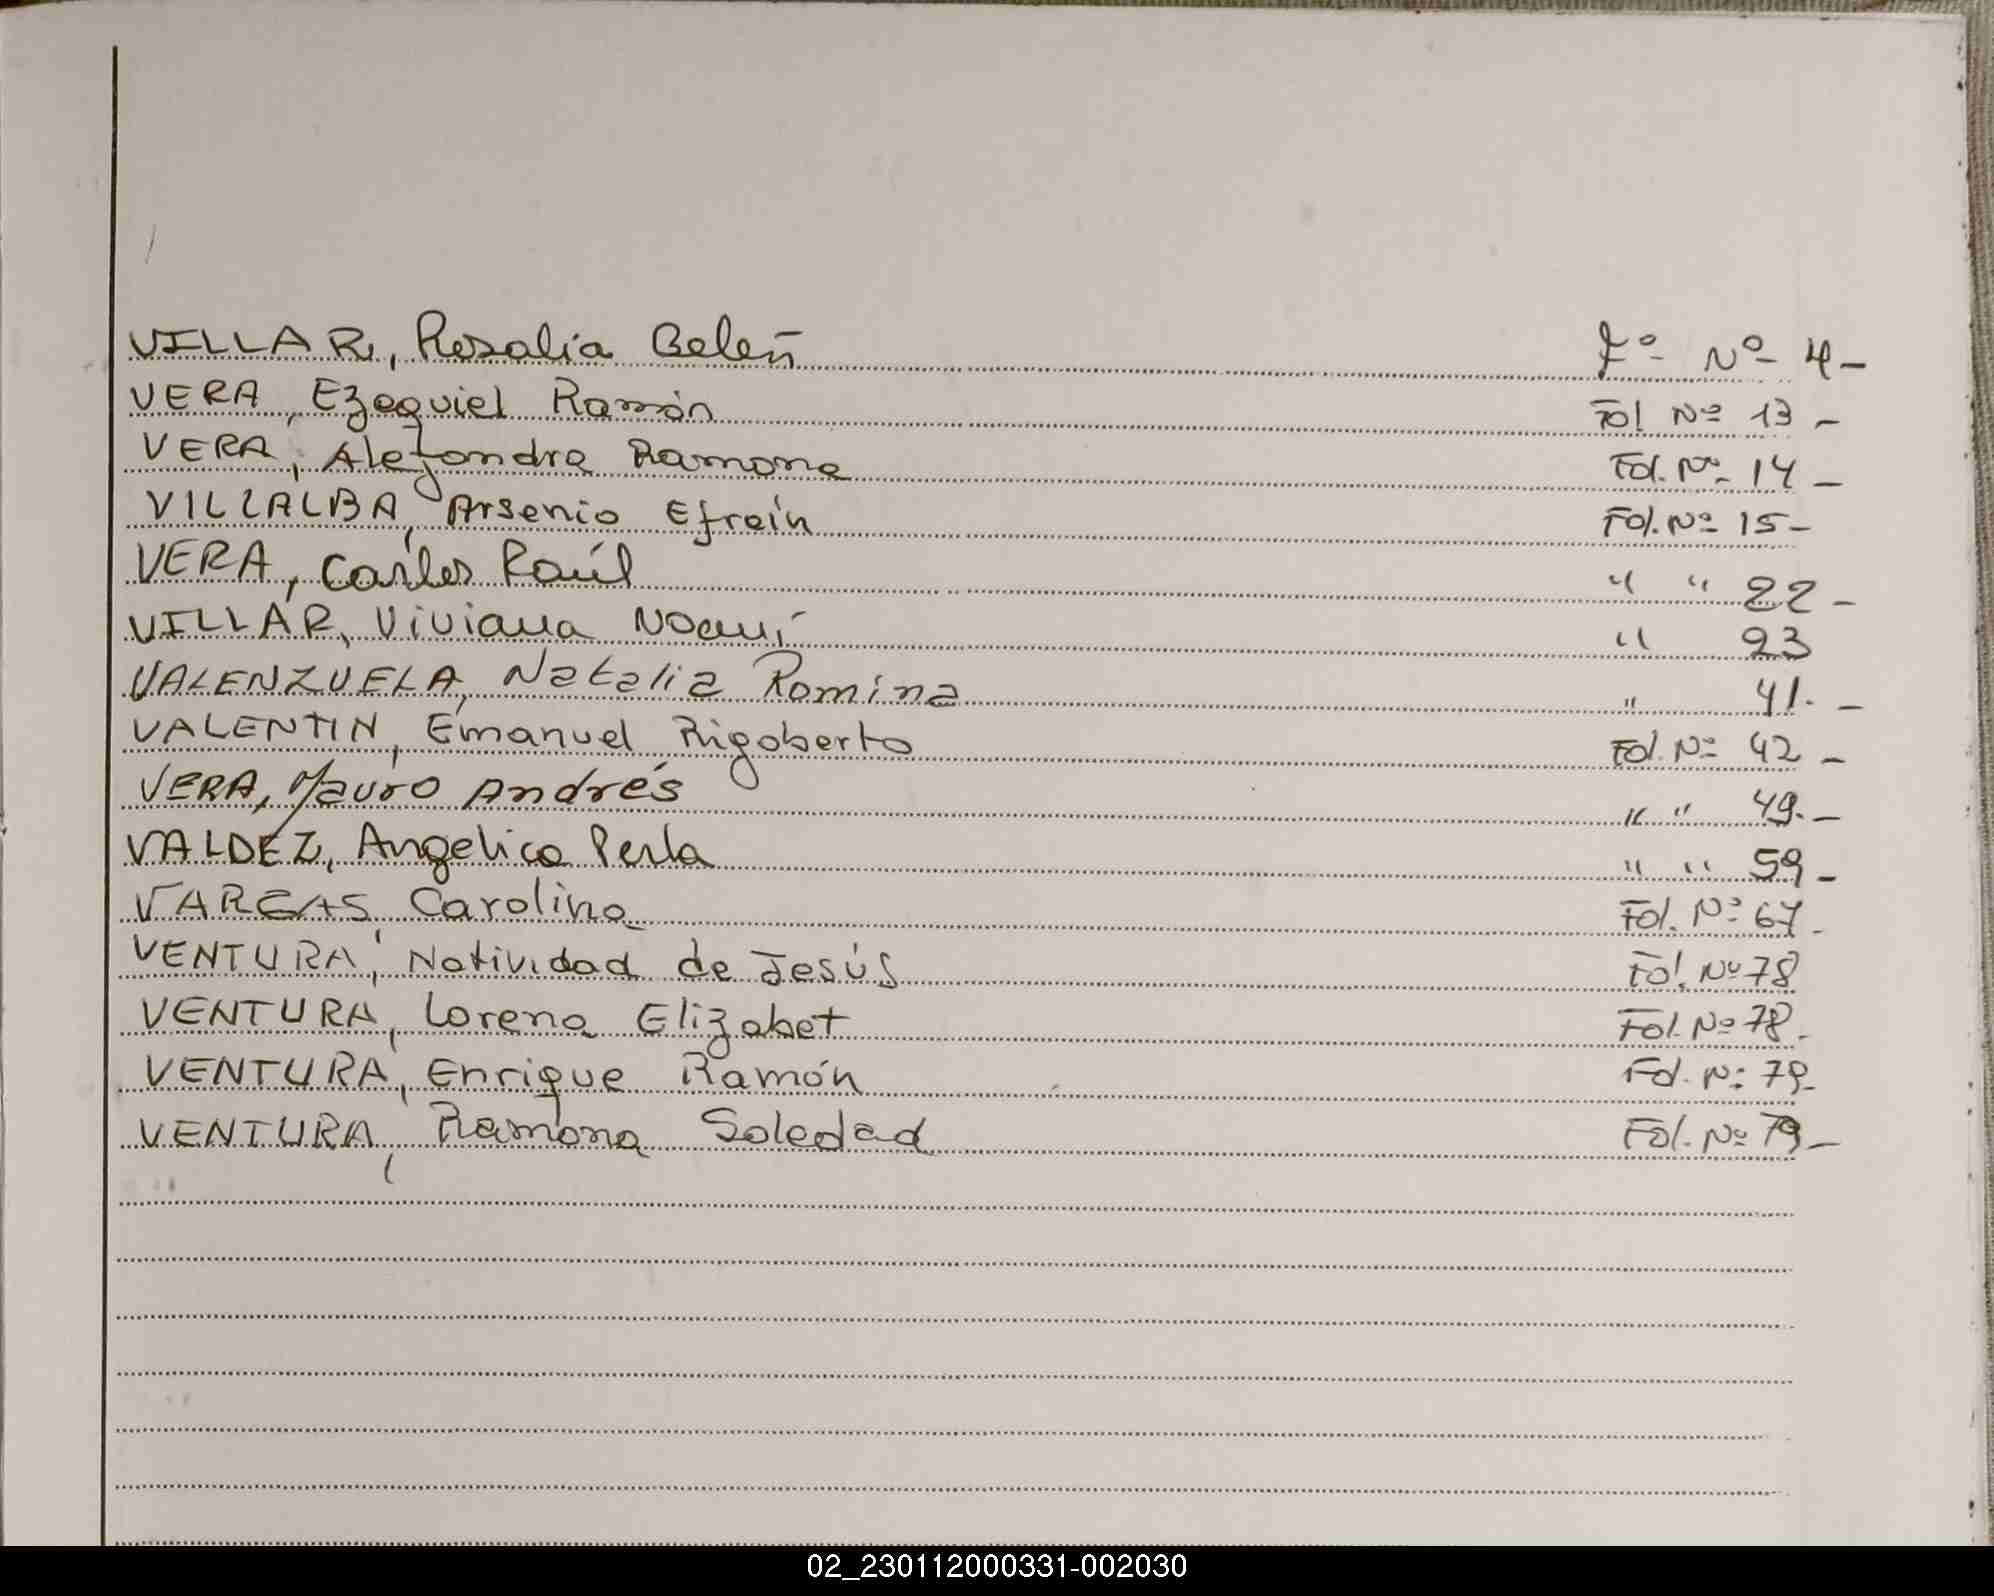 VILLAR, Rosalia Belén Fº Nº 4-
VERA, Ezequiel Ramón Fol Nº 13-
VERA, Alejandra Ramona Fol. Nº 14-
VILLALBA, Arsenio Efraín Fol. Nº 15-
VERA, Carlos Raúl " " 22-
VILLAR, Viviana Noemí " 23
VALENZUELA, Natalia Romina " 41.-
VALENTIN, Emanuel Rigoberto Fol. Nº 42-
VERA, Mauro Andrés " " 49.-
VALDEZ, Angelica Perla " " 59-
VARGAS, Carolina Fol. Nº 67-
VENTURA, Natividad de Jesús Fol. Nº 78
VENTURA, Lorena Elizabet Fol. Nº 78-
VENTURA, Enrique Ramón Fol. Nº 79-
VENTURA, Ramona Soledad Fol. Nº 79-
02_230112000331-002030